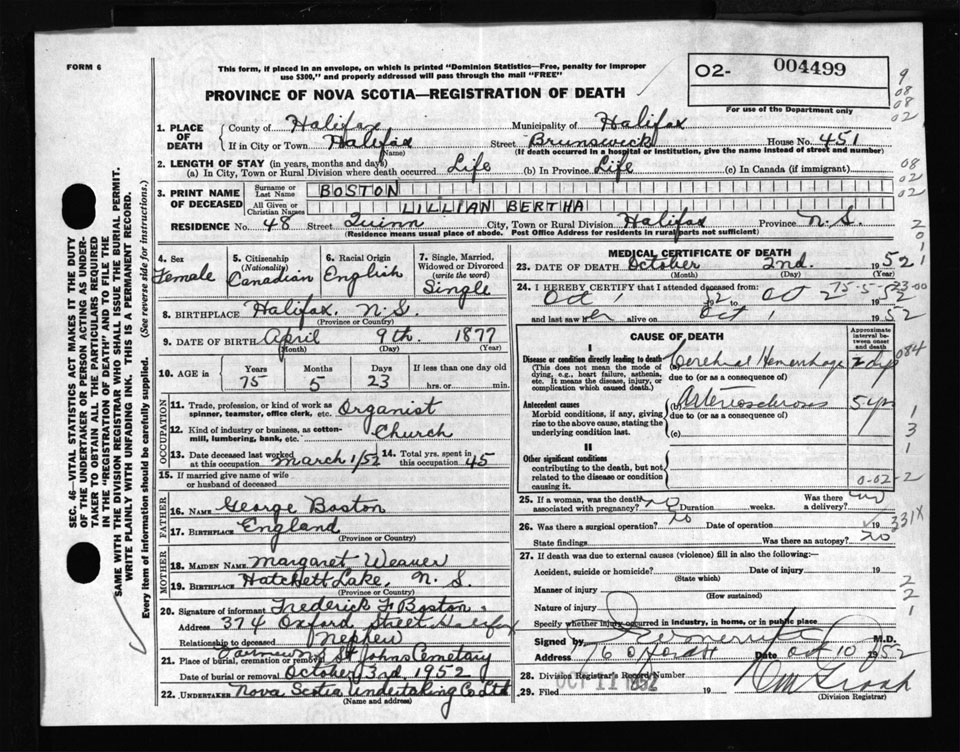 FORM 6
This form, if placed in an envelope, on which is printed "Dominion Statistics—Free, penalty for improper
use $300," and properly addressed will pass through the mail "FREE"
PROVINCE OF NOVA SCOTIA—REGISTRATION OF DEATH
02- 004499
For use of the Department only
9
08
08
02
1. PLACE OF DEATH
County of Halifax Municipality of Halifax
If in City or Town Halifax Street Brunswick House No. 451
(Name) (If death occurred in a hospital or institution, give the name instead of street and number)
2. LENGTH OF STAY (in years, months and days)
(a) In City, Town or Rural Division where death occurred Life (b) In Province Life (c) In Canada (if immigrant)
08
02
02
3. PRINT NAME OF DECEASED
Surname or Last Name BOSTON
All Given or Christian Names LILLIAN BERTHA
RESIDENCE No. 48 Street Quinn City, Town or Rural Division Halifax Province N.S.
(Residence means usual place of abode. Post Office Address for residents in rural parts not sufficient)
2
0
1
SEC. 46—VITAL STATISTICS ACT MAKES IT THE DUTY
OF THE UNDERTAKER OR PERSON ACTING AS UNDER-
TAKER TO OBTAIN ALL THE PARTICULARS REQUIRED
IN THE "REGISTRATION OF DEATH" AND TO FILE THE
SAME WITH THE DIVISION REGISTRAR WHO SHALL ISSUE THE BURIAL PERMIT.
WRITE PLAINLY WITH UNFADING INK. THIS IS A PERMANENT RECORD.
Every item of information should be carefully supplied. (See reverse side for instructions.)
4. Sex Female
5. Citizenship (Nationality) Canadian
6. Racial Origin English
7. Single, Married, Widowed or Divorced (write the word) Single
8. BIRTHPLACE Halifax, N.S.
(Province or Country)
9. DATE OF BIRTH April 9th. 1877
(Month) (Day) (Year)
10. AGE in Years Months Days If less than one day old
75 5 23 hrs. or min.
OCCUPATION
11. Trade, profession, or kind of work as spinner, teamster, office clerk, etc. Organist
12. Kind of industry or business, as cotton-mill, lumbering, bank, etc. Church
13. Date deceased last worked at this occupation March 1/52 14. Total yrs. spent in this occupation 45
15. If married give name of wife or husband of deceased
FATHER
16. NAME George Boston
17. BIRTHPLACE England
(Province or Country)
MOTHER
18. MAIDEN NAME Margaret Weaver
19. BIRTHPLACE Hatchett Lake, N.S.
(Province or Country)
20. Signature of informant Frederick F. Boston.
Address 374 Oxford Street Halifax
Relationship to deceased Nephew
21. Place of burial, cremation or removal Fairview St Johns Cemetary
Date of burial or removal October 3rd, 1952
22. UNDERTAKER Nova Scotia Undertaking Co Ltd
(Name and address)
MEDICAL CERTIFICATE OF DEATH
23. DATE OF DEATH October 2nd. 1952
(Month) (Day) (Year)
75-5-23-00
24. I HEREBY CERTIFY that I attended deceased from:
Oct 1 52 to Oct 2 1952
and last saw her alive on Oct 1 1952
CAUSE OF DEATH
Approximate interval between onset and death
I
Disease or condition directly leading to death
(This does not mean the mode of dying, e.g., heart failure, asthenia, etc. It means the disease, injury, or complication which caused death.)
(a) Cerebral Hemorrhage 2 dys
due to (or as a consequence of)
084
Antecedent causes
Morbid conditions, if any, giving rise to the above cause, stating the underlying condition last.
(b) Arteriosclerosis 5 yrs
due to (or as a consequence of)
(c)
1
3
1
II
Other significant conditions
contributing to the death, but not related to the disease or condition causing it.
0-02-2
25. If a woman, was the death associated with pregnancy? no Duration weeks. Was there a delivery? no
26. Was there a surgical operation? no Date of operation 19
331X
State findings Was there an autopsy? no
27. If death was due to external causes (violence) fill in also the following:—
Accident, suicide or homicide? Date of injury 19
(State which)
Manner of injury
(How sustained)
Nature of injury
Specify whether injury occurred in industry, in home, or in public place
2
2
1
Signed by M.D.
Address 76 Oxford St Oct 10 1952
28. Division Registrar's Record Number
29. Filed OCT 11 1952 19
(Division Registrar)